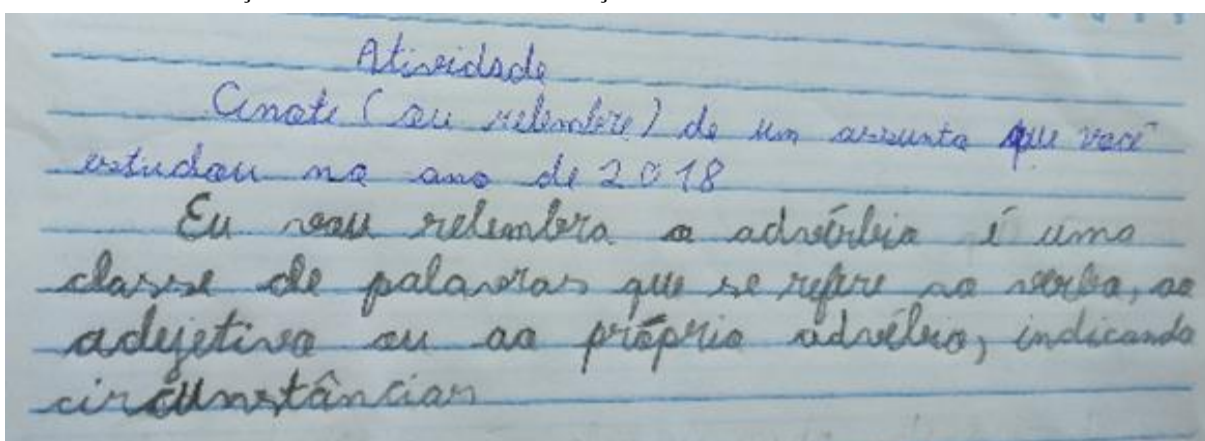 Atividade
Anote (ou relembre) de um assunto que você
estudou no ano de 2018
Eu vou relembra o advérbio é uma
classe de palavras que se refere ao verbo, ao
adejetivo ou ao próprio advélbio, indicando
circunstâncias